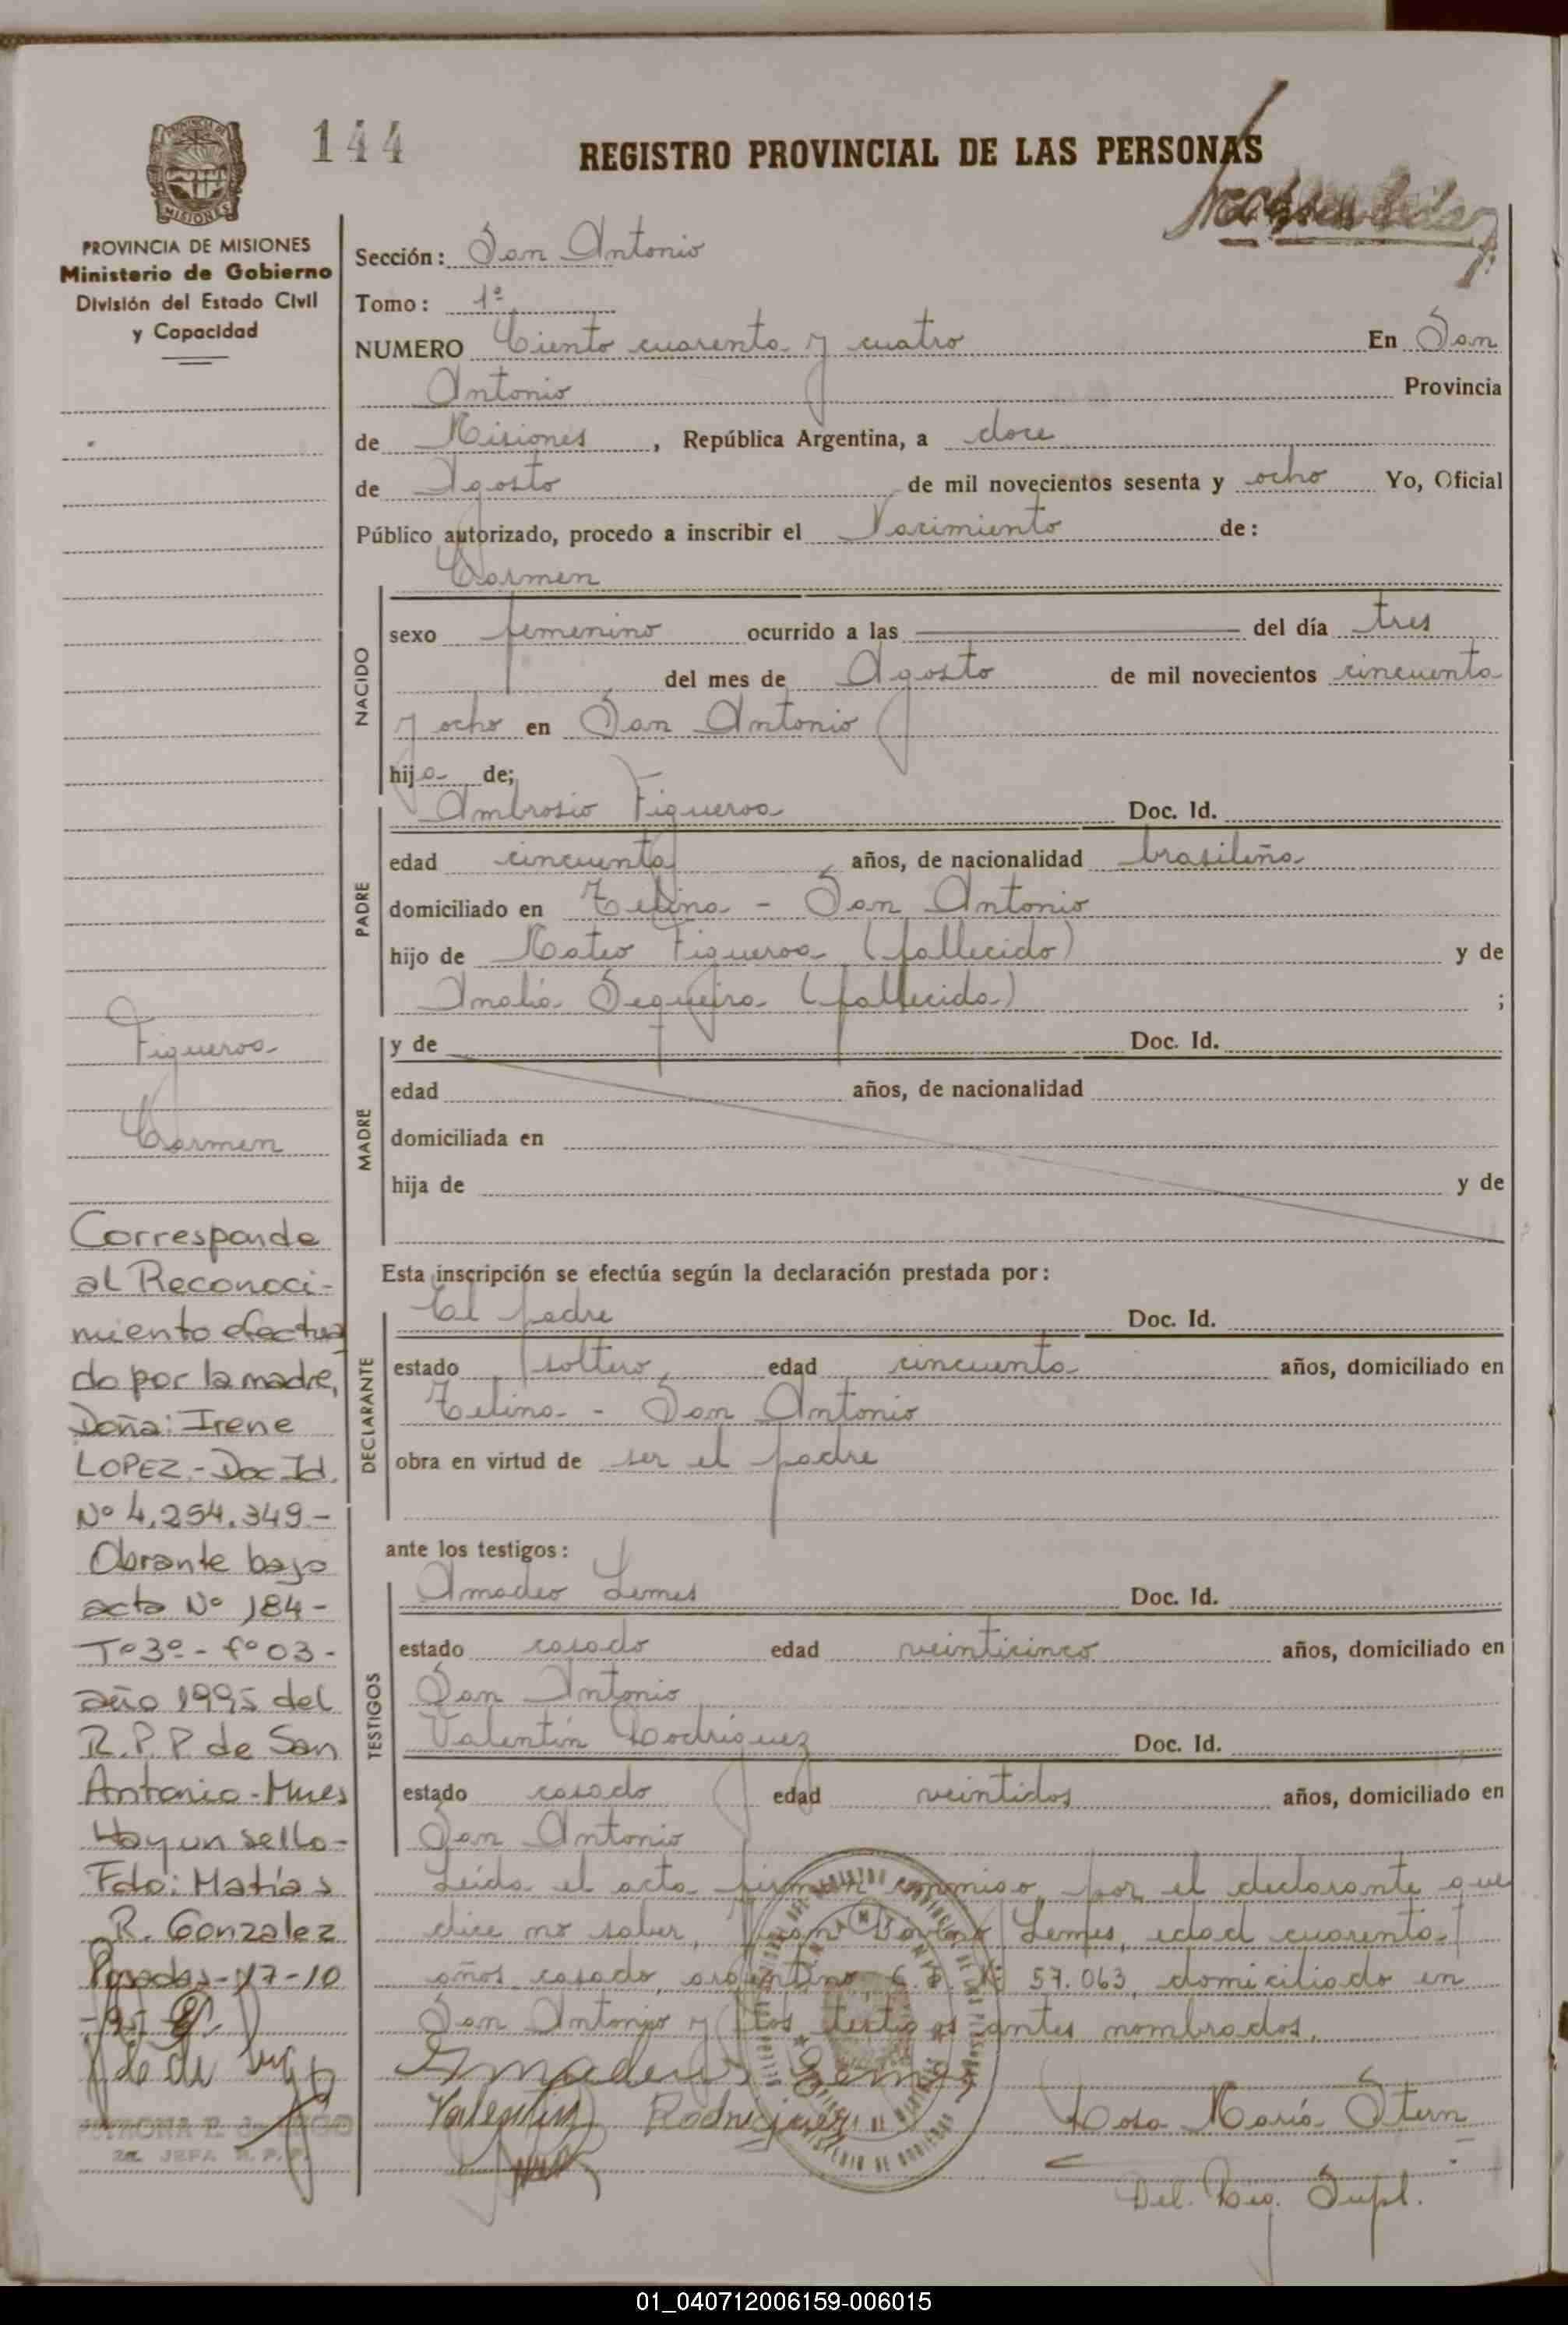 144
REGISTRO PROVINCIAL DE LAS PERSONAS
PROVINCIA DE MISIONES
Ministerio de Gobierno
División del Estado Civil
y Capacidad
Sección: San Antonio
Tomo: 1º
NUMERO Ciento cuarenta y cuatro En San
Antonio Provincia
de Misiones, República Argentina, a doce
de Agosto de mil novecientos sesenta y ocho Yo, Oficial
Público autorizado, procedo a inscribir el Nacimiento de:
Carmen
NACIDO
sexo femenino ocurrido a las del día tres
del mes de Agosto de mil novecientos cincuenta
y ocho en San Antonio
hija de;
PADRE
Ambrosio Figueroa Doc. Id.
edad cincuenta años, de nacionalidad brasileña
domiciliado en Celina - San Antonio
hijo de Mateo Figueroa (fallecido) y de
Analia Sequeira (fallecida) ;
MADRE
y de Doc. Id.
edad años, de nacionalidad
domiciliada en
hija de y de
Esta inscripción se efectúa según la declaración prestada por:
DECLARANTE
El padre Doc. Id.
estado soltero edad cincuenta años, domiciliado en
Celina - San Antonio
obra en virtud de ser el padre
ante los testigos:
TESTIGOS
Amadeo Lemes Doc. Id.
estado casado edad veinticinco años, domiciliado en
San Antonio
Valentín Rodriguez Doc. Id.
estado casado edad veintidos años, domiciliado en
San Antonio
Leída el acta firman conmigo, por el declarante que
dice no saber, Lemes, edad cuarenta
años, casado, argentino, C. I. Nº 57.063, domiciliado en
San Antonio y los testigos antes nombrados.
Amadeo Lemes
Valentin Rodriguez
Rosa María Stern
Del. Reg. Supl.
Figueroa
Carmen
Corresponde
al Reconoci-
miento efectua
do por la madre,
Doña: Irene
LOPEZ - Doc Id.
Nº 4.254.349 -
Obrante bajo
acta Nº 184 -
Tº 3º - fº 03 -
año 1995 del
R.P.P de San
Antonio - Mnes
Hay un sello -
Fdo: Matías
R. Gonzalez
Posadas - 17-10
-95
2a. JEFA R.P.P.
01_040712006159-006015